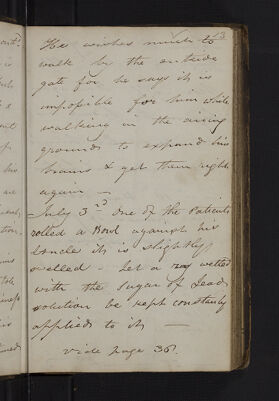 13
He wishes much to
walk by the outside
gate for he says it is
impossible for him while
walking in the airing
grounds to expand his
brains & get them right
again —
July 3rd one of the Patients
rolled a Bowl against his
Ancle it is slightly
swelled — Let a rag wetted
with the Sugar of Lead
solution be kept constantly
applied to it —
vide page 36.